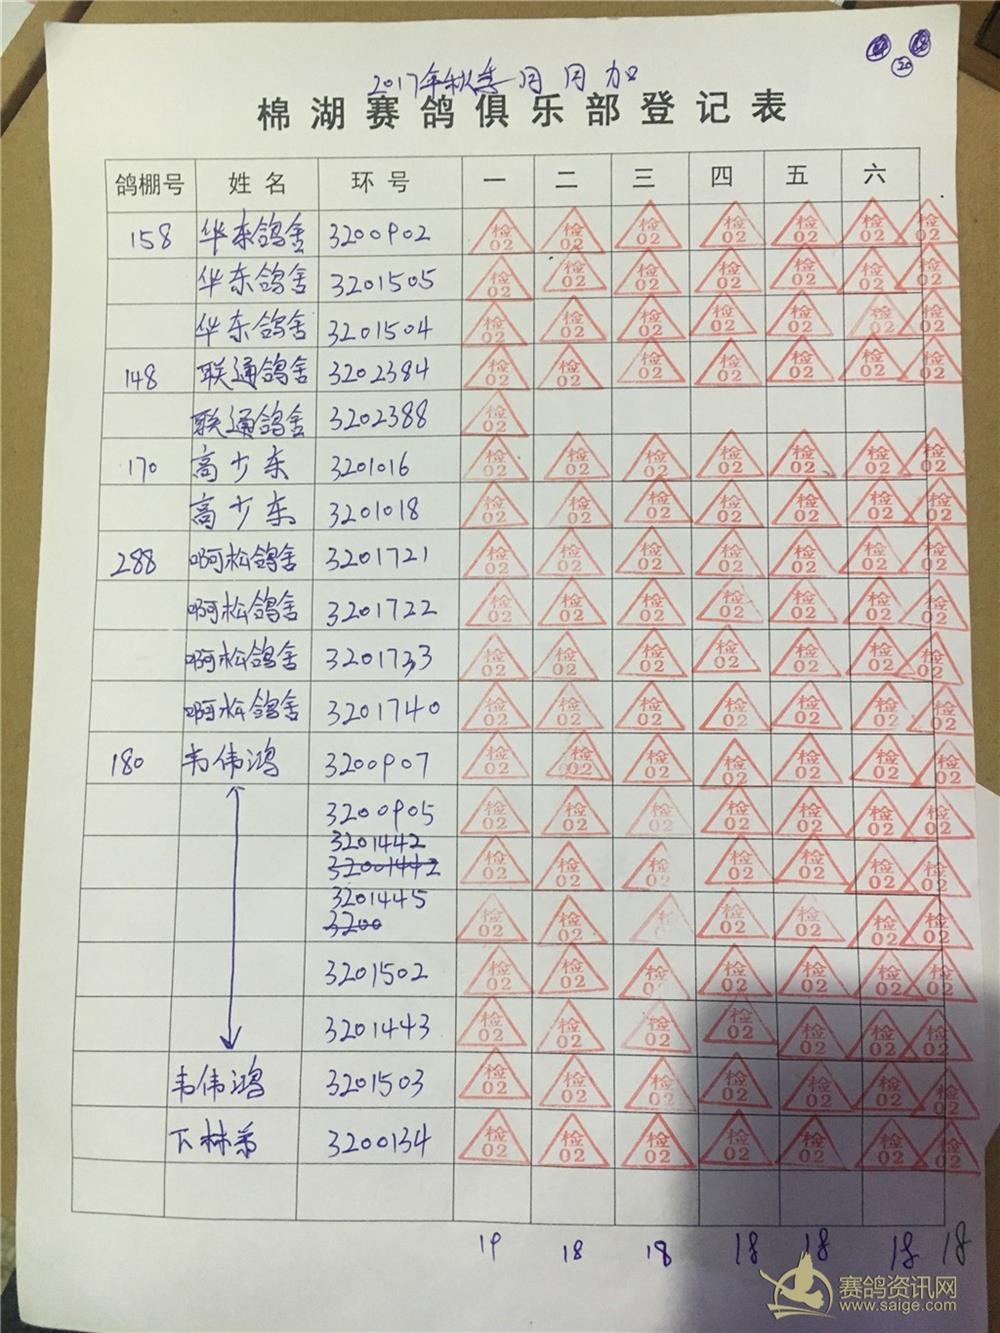 20
2017年秋季月月加
棉湖赛鸽俱乐部登记表
鸽棚号 姓名 环号 一 二 三 四 五 六
158 华东鸽舍 3200902 检02 检02 检02 检02 检02 检02 检02
华东鸽舍 3201505 检02 检02 检02 检02 检02 检02 检02
华东鸽舍 3201504 检02 检02 检02 检02 检02 检02 检02
148 联通鸽舍 3202384 检02 检02 检02 检02 检02 检02 检02
联通鸽舍 3202388 检02
170 高少东 3201016 检02 检02 检02 检02 检02 检02 检02
高少东 3201018 检02 检02 检02 检02 检02 检02 检02
288 啊松鸽舍 3201721 检02 检02 检02 检02 检02 检02 检02
啊松鸽舍 3201722 检02 检02 检02 检02 检02 检02 检02
啊松鸽舍 3201733 检02 检02 检02 检02 检02 检02 检02
啊松鸽舍 3201740 检02 检02 检02 检02 检02 检02 检02
180 韦伟鸿 3200907 检02 检02 检02 检02 检02 检02 检02
3200905 检02 检02 检02 检02 检02 检02 检02
3201442
32001442 检02 检02 检02 检02 检02 检02 检02
3201445
3200 检02 检02 检02 检02 检02 检02 检02
3201502 检02 检02 检02 检02 检02 检02 检02
3201443 检02 检02 检02 检02 检02 检02 检02
韦伟鸿 3201503 检02 检02 检02 检02 检02 检02 检02
林弟 3200134 检02 检02 检02 检02 检02 检02 检02
19 18 18 18 18 18 18
赛鸽资讯网
www.saige.com